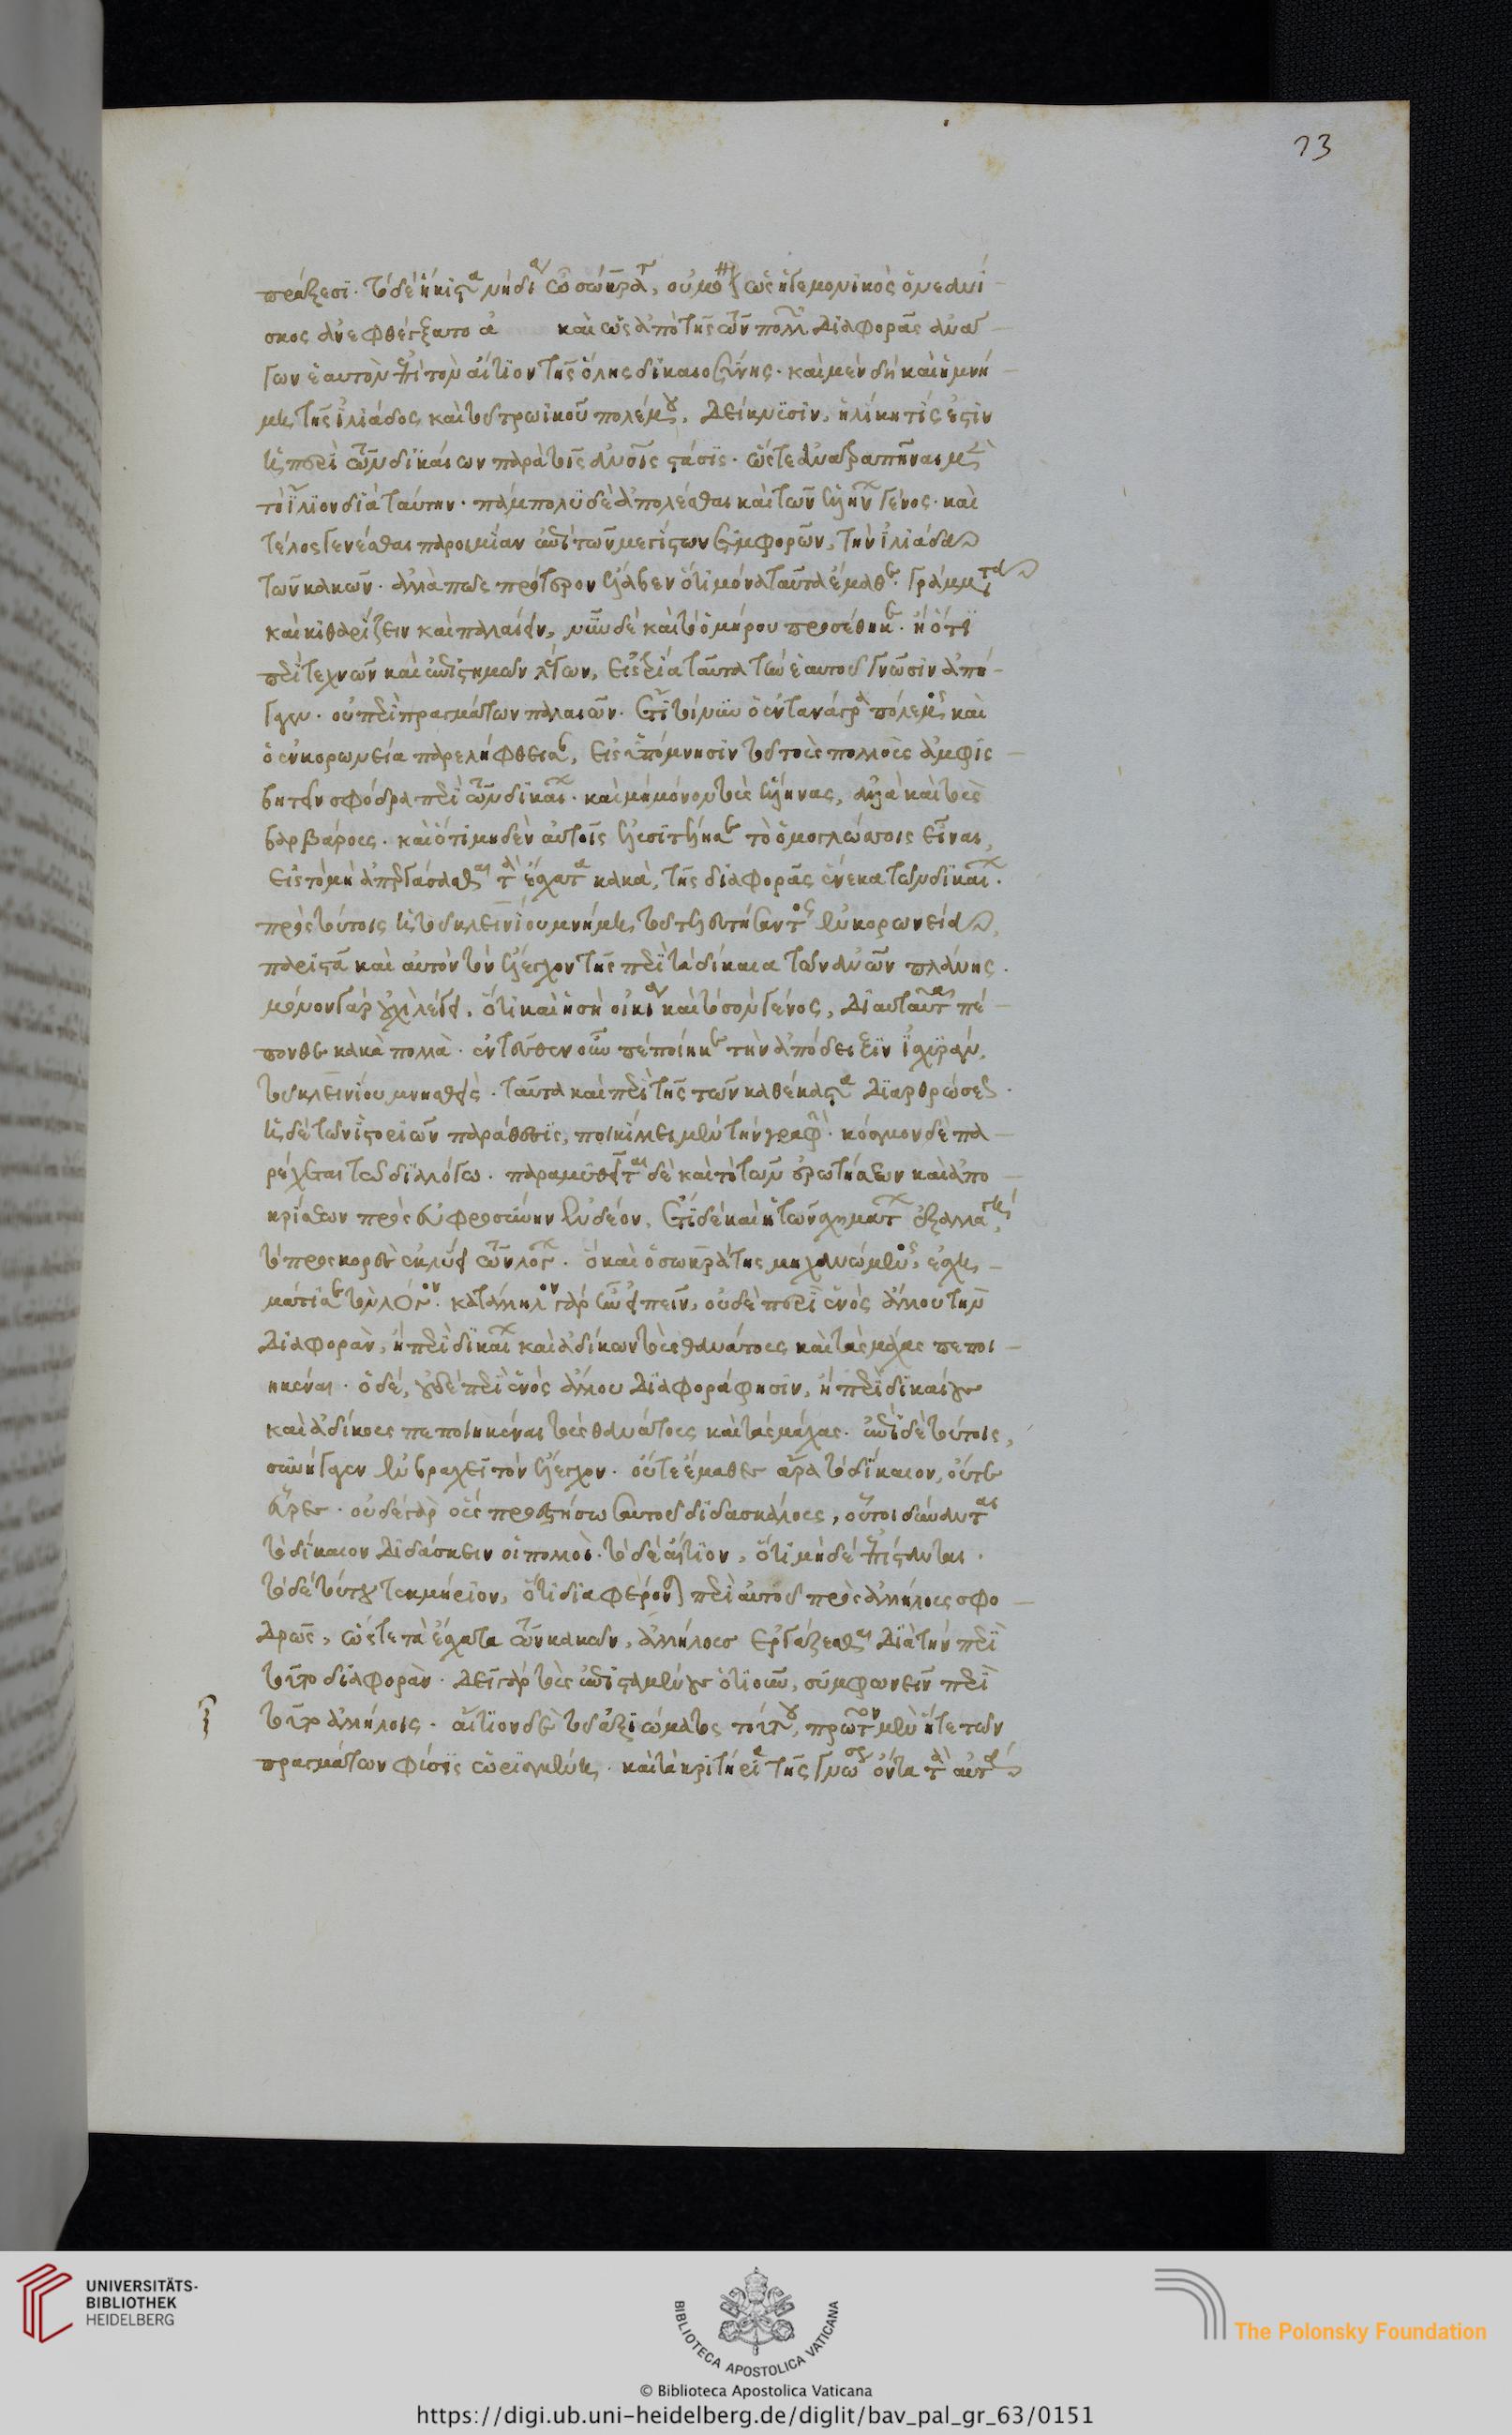 73
πράξεσι. τὸ δὲ ἥκιστα νὴ δία ὦ σώκρατ, οὐ μο ὡς ἡγεμονικὸς ὁ νεανί
σκος ἀνεφθέγξατο ἀ καὶ ὡς ἀπὸ τῆς τῶν πολλ διαφορᾶς ἀνάγ
γων ἑαυτὸν ἐπὶ τὸν αἴτιον τῆς ὅλης δικαιοσύνης. καὶ μὲν δὴ καὶ ἡ μνή
μη τῆς ἰλιάδος καὶ τοῦ τρωικοῦ πολέμου, δείκνυσιν, ἡλίκη τίς ἐστιν
ἡ περὶ τῶν δικαίων παρὰ τοῖς ἀνοῖς στάσις. ὥστε ἀνατραπῆναι μὲν
τὸ ἴλιον διὰ ταύτην. πάμπολυ δὲ ἀπολέσθαι καὶ τῶν ἑλλήνων γένος. καὶ
τέλος γενέσθαι παροιμίαν ἐπὶ τῶν μεγίστων συμφορῶν, τὴν ἰλιάδα
τῶν κακῶν. ἀλλὰ πῶς πρότερον ἔλαβεν ὅτι μόνα ταῦτα ἔμαθε. γράμματα
καὶ κιθαρίζειν καὶ παλαίειν, νῦν δὲ καὶ τὸ ὁμήρου προσέθηκε. ἢ ὅτι
περὶ τεχνῶν καὶ ἐπιστημῶν λέγων, εἰς ταῦτα τὴν ἑαυτοῦ γνῶσιν ἀπή
γαγεν. οὐ περὶ πραγμάτων παλαιῶν. ἔτι τοίνυν ὁ ἐν τανάγρᾳ πόλεμος καὶ
ὁ ἐν κορωνείᾳ παρελήφθησαν, εἰς ὑπόμνησιν τοῦ τοὺς πολλοὺς ἀμφισ
βητεῖν σφόδρα περὶ τῶν δικαίων. καὶ μὴ μόνον τοὺς ἕλληνας, ἀλλὰ καὶ τοὺς
βαρβάρους. καὶ ὅτι μηδὲν αὐτοῖς λυσιτέληκε τὸ ὁμογλώσσοις εἶναι,
εἰς τὸ μὴ ἀπεργάσασθαι τὰ ἔσχατα κακὰ, τῆς διαφορᾶς ἕνεκα τῶν δικαίων.
πρὸς τούτοις ἡ τοῦ κλεινίου μνήμη τοῦ τελευτήσαντος ἐν κορωνείᾳ,
παρίστα καὶ αὐτὸν τὸν ἔλεγχον τῆς περὶ τὰ δίκαια τῶν ἀνων πλάνης.
μόνον γὰρ οὐχὶ λέγει, ὅτι καὶ ἡ σὴ οἰκία καὶ τὸ σὸν γένος, διὰ ταῦτα πέ
πονθε κακὰ πολλὰ. ἐντεῦθεν οὖν πεποίηκε τὴν ἀπόδειξιν ἰσχυρὰν,
τοῦ κλεινίου μνησθεὶς. ταῦτα καὶ περὶ τῆς τῶν καθέκαστα διαρθρώσεως.
ἡ δὲ τῶν ἱστοριῶν παράθεσις, ποικίλλει μὲν τὴν γραφὴν. κόσμον δὲ πα
ρέχεται τῷ διαλόγῳ. παραμυθεῖται δὲ καὶ τὸ τῶν ἐρωτήσεων καὶ ἀπο
κρίσεων πρὸς εὐφροσύνην ἐνδέον. ἔτι δὲ καὶ ἡ τῶν σχημάτων ἐξαλλαγὴ
τὸ προσκορὲς ἐκλύει τῶν λόγων. ὃ καὶ ὁ σωκράτης μηχανώμενος, ἐσχη
μάτισε τὸν λόγον. κατάλληλον γὰρ ὂν εἰπεῖν, οὐδὲ περὶ ἑνὸς ἄλλου τὴν
διαφορὰν, ἢ περὶ δικαίων καὶ ἀδίκων τοὺς θανάτους καὶ τὰς μάχας πεποι
ηκέναι. ὁ δέ, οὐδὲ περὶ ἑνὸς ἄλλου διαφορά φησιν, ἢ περὶ δικαίους
καὶ ἀδίκους πεποιηκέναι τοὺς θανάτους καὶ τὰς μάχας. ἐπὶ δὲ τούτοις,
συνήγαγεν ἐν βραχεῖ τὸν ἔλεγχον. οὔτε ἔμαθες ἄρα τὸ δίκαιον, οὔτε
εὗρες. οὐδὲ γὰρ οὓς προστήσω σαυτοῦ διδασκάλους, οὗτοι δύνανται
τὸ δίκαιον διδάσκειν οἱ πολλοὶ. τὸ δὲ αἴτιον, ὅτι μηδὲ ἐπίστανται.
τὸ δὲ τούτου τεκμήριον, ὅτι διαφέρονται περὶ αὐτοῦ πρὸς ἀλλήλους σφο
δρῶς, ὥστε τὰ ἔσχατα τῶν κακῶν, ἀλλήλους ἐργάζεσθαι διὰ τὴν περὶ
τοῦτο διαφορὰν. δεῖ γὰρ τοὺς ἐπισταμένους ὁτιοῦν, συμφωνεῖν περὶ
τοῦτο ἀλλήλοις. αἴτιον δὲ τοῦ ἀξιώματος τούτου, πρῶτον μὲν ἥτε τῶν
πραγμάτων φύσις ὡρισμένη. καὶ τὰ κριτήρια τῆς γνώσεως ὄντα τὰ αὐτά
UNIVERSITÄTS-
BIBLIOTHEK
HEIDELBERG
BIBLIOTECA APOSTOLICA VATICANA
The Polonsky Foundation
© Biblioteca Apostolica Vaticana
https://digi.ub.uni-heidelberg.de/diglit/bav_pal_gr_63/0151